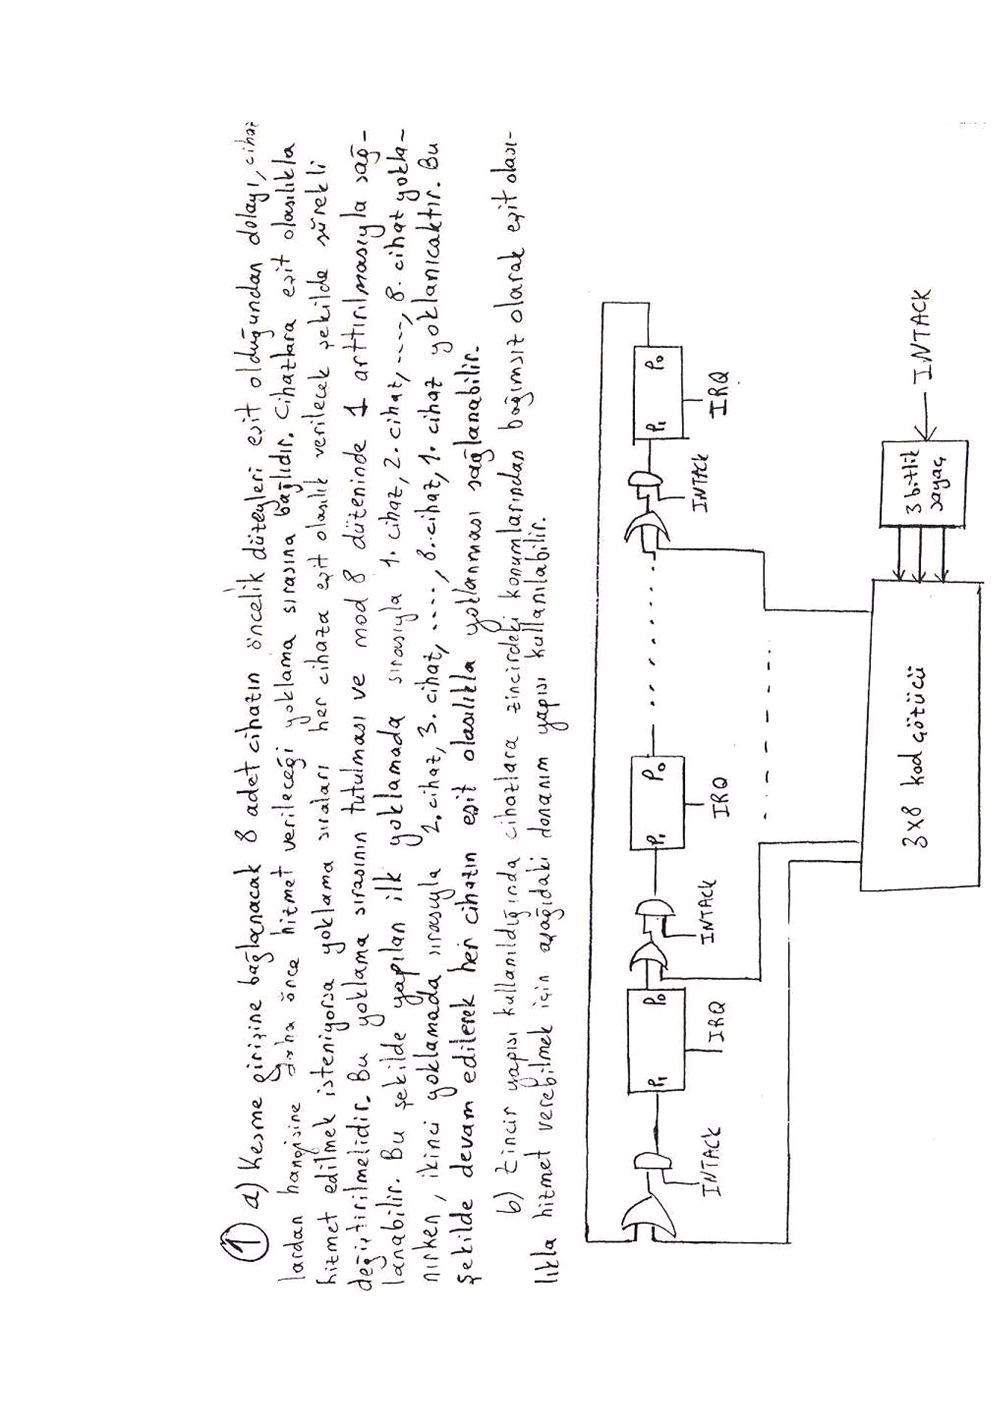 1 a) Kesme girişine bağlanacak 8 adet cihazın öncelik düzeyleri eşit olduğundan dolayı, cihaz
lardan hangisine daha önce hizmet verileceği yoklama sırasına bağlıdır. Cihazlara eşit olasılıkla
hizmet edilmek isteniyorsa yoklama sıraları her cihaza eşit olasılık verilecek şekilde sürekli
değiştirilmelidir. Bu yoklama sırasının tutulması ve mod 8 düzeninde 1 arttırılmasıyla sağ-
lanabilir. Bu şekilde yapılan ilk yoklamada sırasıyla 1. cihaz, 2. cihaz, ----, 8. cihaz yokla-
nırken, ikinci yoklamada sırasıyla 2. cihaz, 3. cihaz, ----, 8. cihaz, 1. cihaz yoklanıcaktır. Bu
şekilde devam edilerek her cihazın eşit olasılıkla yoklanması sağlanabilir.
b) Zincir yapısı kullanıldığında cihazlara zincirdeki konumlarından bağımsız olarak eşit olası-
lıkla hizmet verebilmek için aşağıdaki donanım yapısı kullanılabilir.
PI PO PI PO PI PO
INTACK IRQ INTACK IRQ INTACK IRQ
3x8 kod çözücü
3 bitlik
sayaç
INTACK